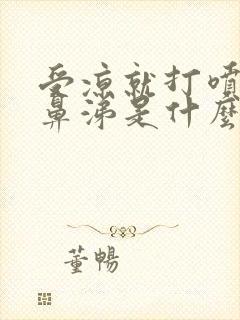 受涼就打噴
鼻涕是什麼
董暢